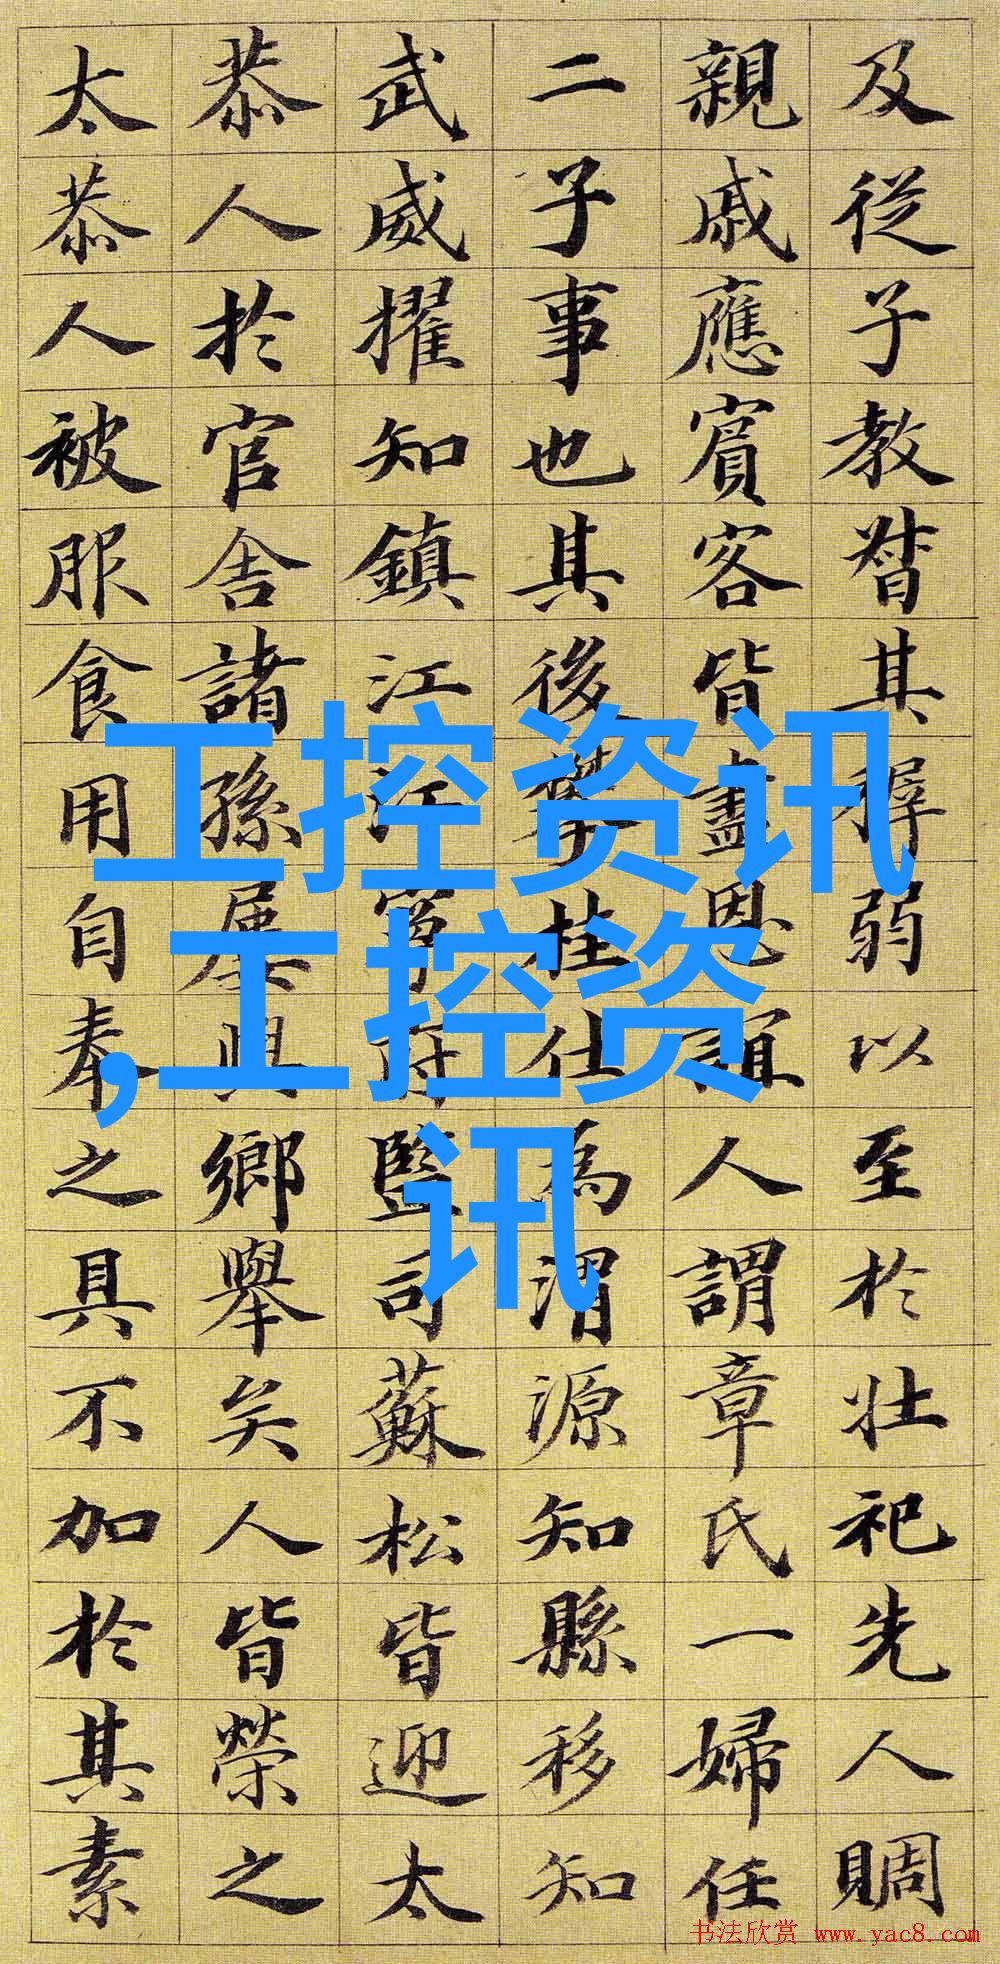 及從子教督其稺弱以至於壯祀先人賙
親戚應賓客皆盡恩誼人謂章氏一婦任
二子事也其後攀桂仕為渭源知縣移知
武威擢知鎮江江寧府監司蘇松皆迎太
恭人於官舍諸孫屢與鄉舉矣人皆榮之
太恭人被服食用自奉之具不加於其素
工控资讯
,工控资
讯
书法欣赏 www.yac8.com